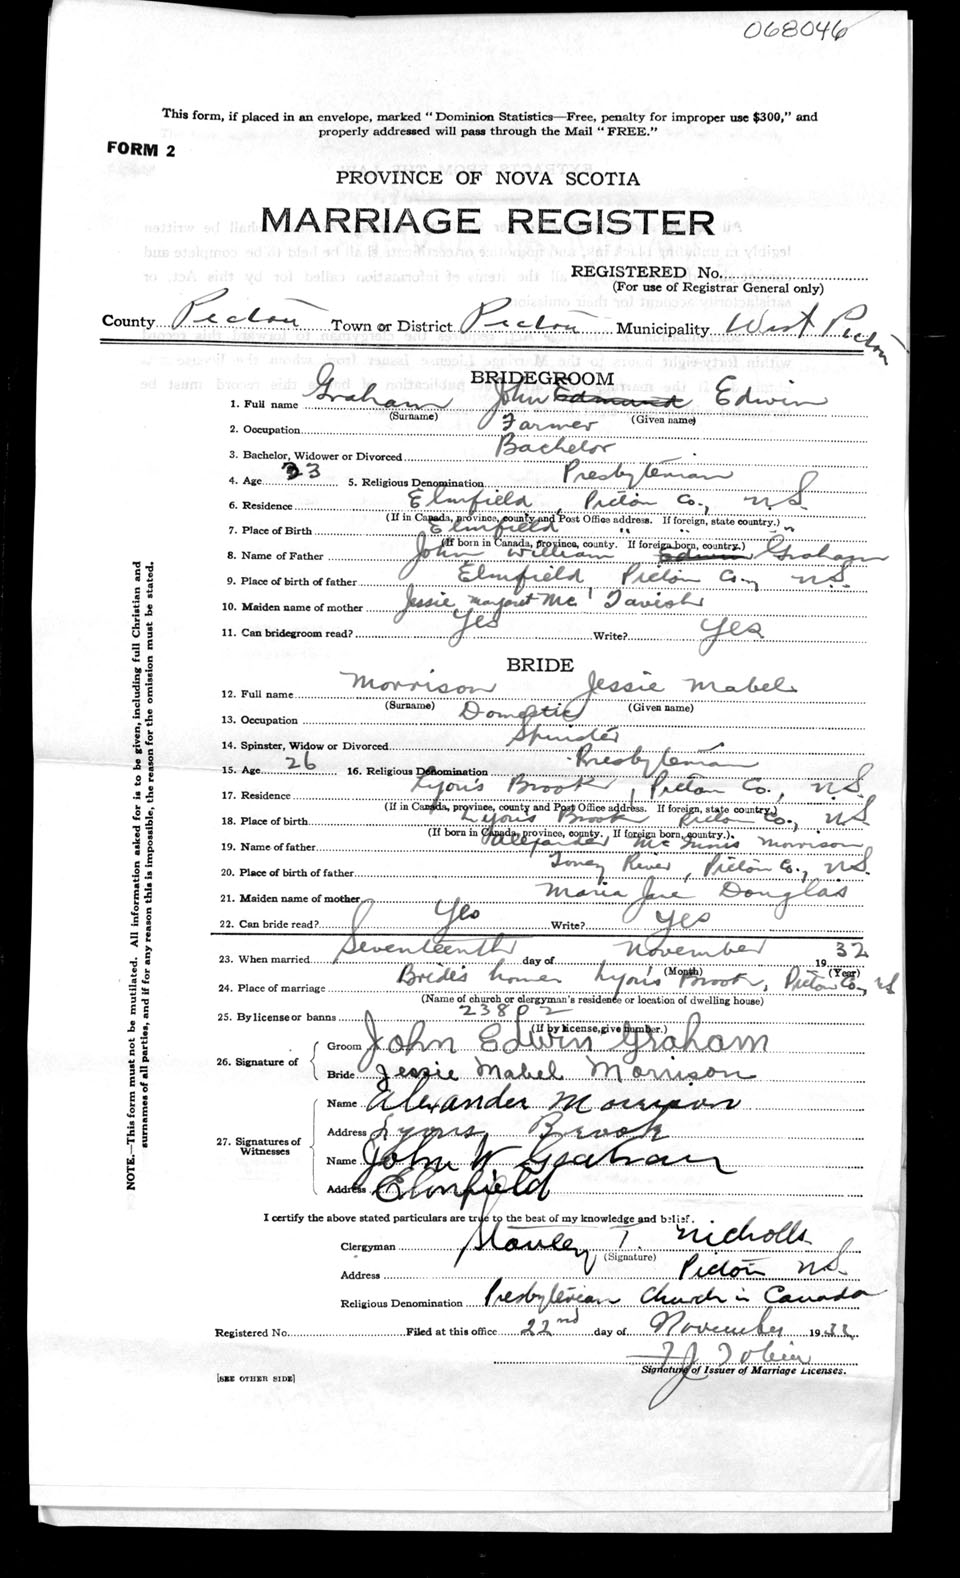 068046
This form, if placed in an envelope, marked "Dominion Statistics—Free, penalty for improper use $300," and
properly addressed will pass through the Mail "FREE."
FORM 2
PROVINCE OF NOVA SCOTIA
MARRIAGE REGISTER
REGISTERED No.
(For use of Registrar General only)
County Pictou Town or District Pictou Municipality West Pictou
BRIDEGROOM
1. Full name Graham John Edmund Edwin
(Surname) (Given name)
2. Occupation Farmer
3. Bachelor, Widower or Divorced Bachelor
4. Age 23 5. Religious Denomination Presbyterian
6. Residence Elmfield, Pictou Co., N.S.
(If in Canada, province, county and Post Office address. If foreign, state country.)
7. Place of Birth Elmfield " " "
(If born in Canada, province, county. If foreign born, country.)
8. Name of Father John William Edwin Graham
9. Place of birth of father Elmfield, Pictou Co., N.S.
10. Maiden name of mother Jessie Margaret McTavish
11. Can bridegroom read? Yes Write? Yes
BRIDE
12. Full name Morrison Jessie Mabel
(Surname) (Given name)
13. Occupation Domestic
14. Spinster, Widow or Divorced Spinster
15. Age 26 16. Religious Denomination Presbyterian
17. Residence Lyon's Brook, Pictou Co., N.S.
(If in Canada, province, county and Post Office address. If foreign, state country.)
18. Place of birth Lyon's Brook Pictou Co., N.S
(If born in Canada, province, county. If foreign born, country.)
19. Name of father Alexander McInnis Morrison
20. Place of birth of father Toney River, Pictou Co., N.S.
21. Maiden name of mother Maria Jane Douglas
22. Can bride read? Yes Write? Yes
23. When married Seventeenth day of November 1932
(Month) (Year)
24. Place of marriage Bride's home, Lyon's Brook, Pictou Co., N.S
(Name of church or clergyman's residence or location of dwelling house)
25. By license or banns 23802
(If by license, give number.)
26. Signature of
Groom John Edwin Graham
Bride Jessie Mabel Morrison
27. Signatures of Witnesses
Name Alexander Morrison
Address Lyons Brook
Name John W Graham
Address Elmfield
I certify the above stated particulars are true to the best of my knowledge and belief.
Clergyman Stanley T. Nicholls
(Signature)
Address Pictou N.S.
Religious Denomination Presbyterian Church in Canada
Registered No. Filed at this office 22nd day of November 1932
J Tobin
Signature of Issuer of Marriage Licenses.
[SEE OTHER SIDE]
NOTE.—This form must not be mutilated. All information asked for is to be given, including full Christian and
surnames of all parties, and if for any reason this is impossible, the reason for the omission must be stated.